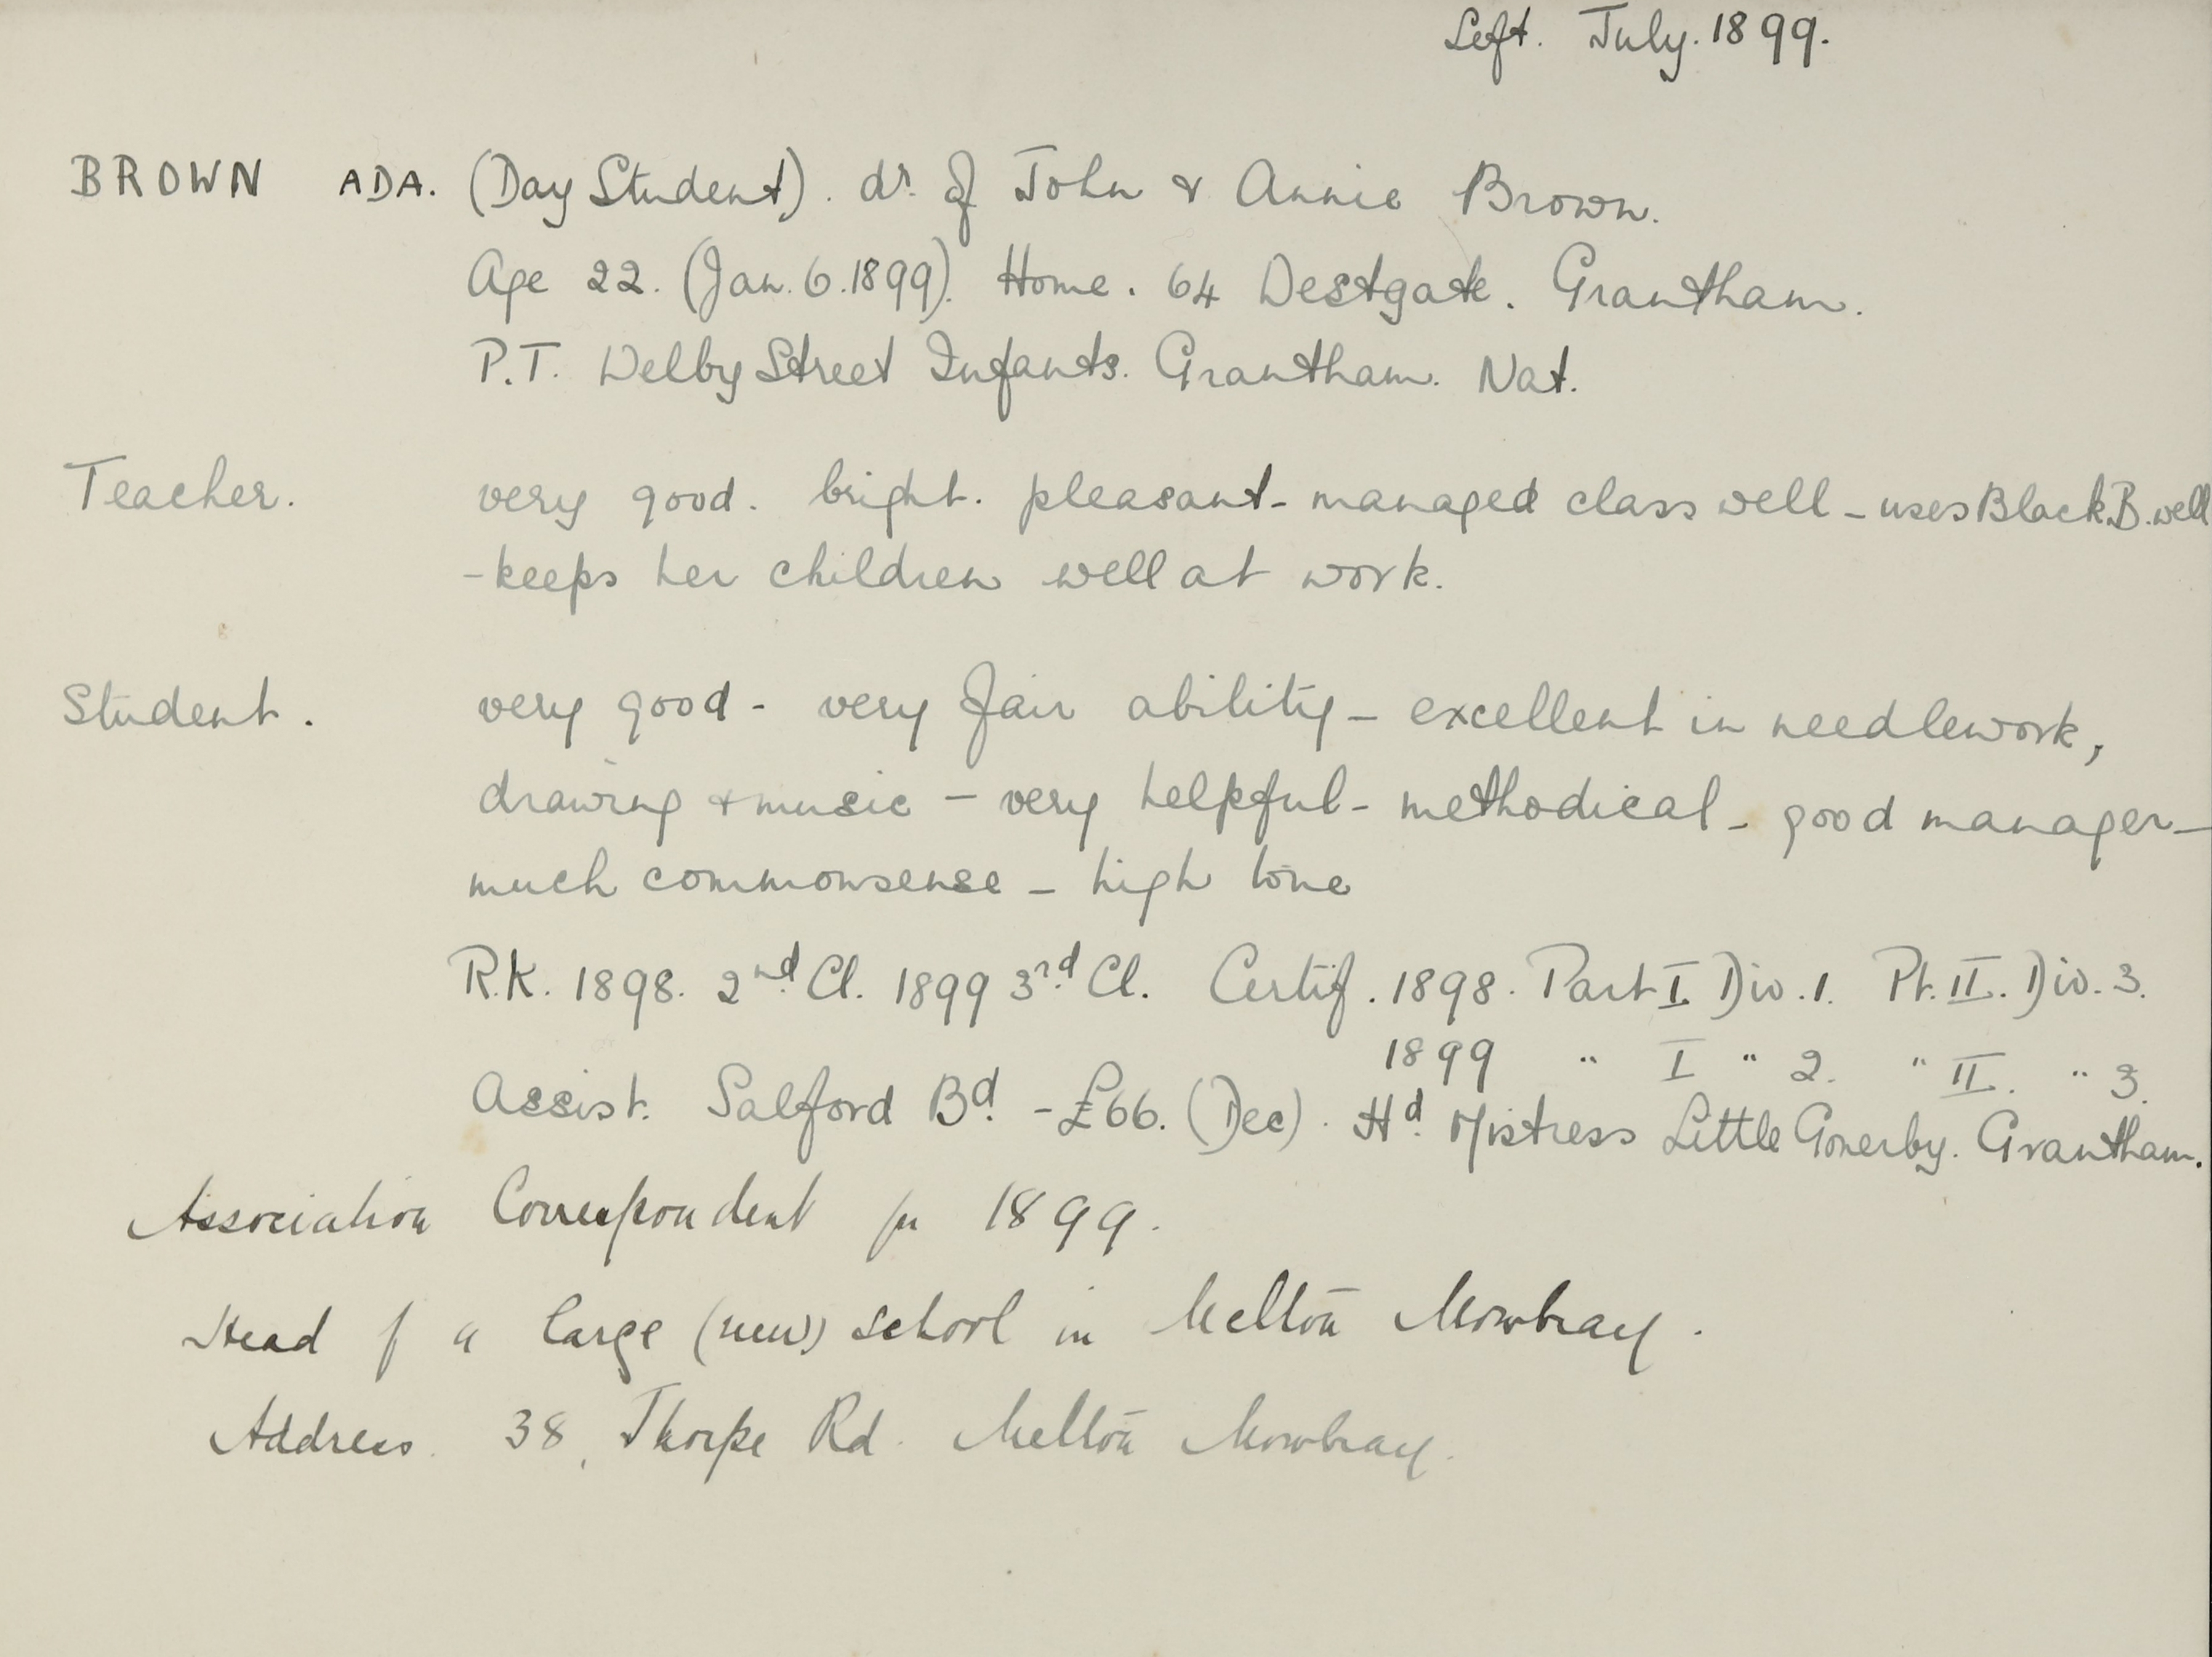 Left. July. 1899.
BROWN ADA. (Day Student). dr. of John & Annie Brown.
Age 22. (Jan. 6. 1899). Home. 64 Westgate. Grantham.
P.T. Welby Street Infants. Grantham. Nat.
Teacher. very good. bright. pleasant - managed class well - uses Black B. well
- keeps her children well at work.
Student. very good - very fair ability - excellent in needlework,
drawing & music - very helpful - methodical - good manager -
much commonsense - high tone
R.K. 1898. 2nd Cl. 1899 3rd Cl. Certif. 1898. Part I Div. 1. Pt. II. Div. 3.
1899 " I " 2. " II. " 3.
Assist. Salford Bd. - £66. (Dec). Hd. Mistress Little Gonerby. Grantham.
Association Correspondent for 1899.
Head of a large (new) school in Melton Mowbray.
Address. 38, Thorpe Rd. Melton Mowbray.